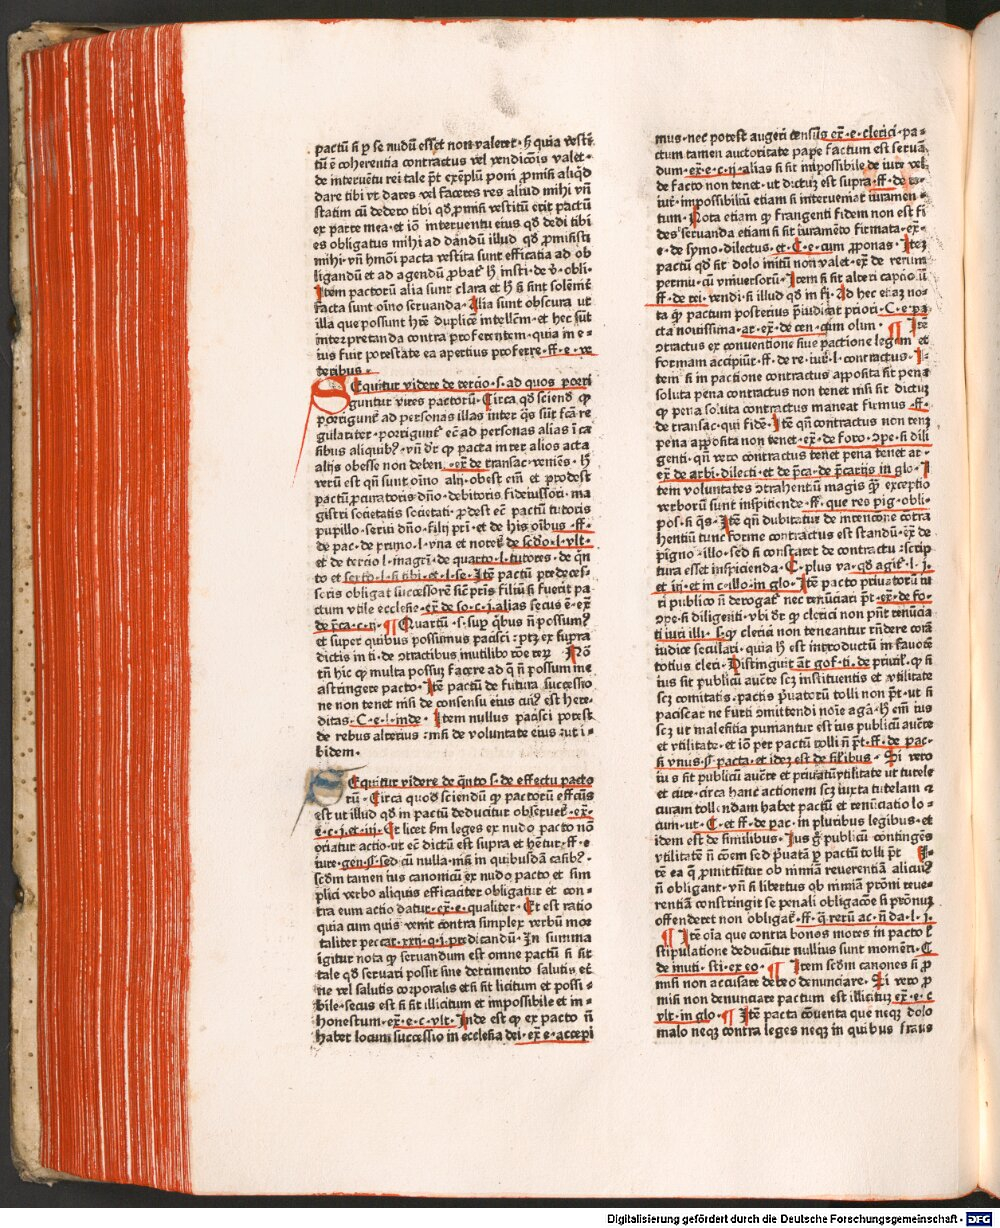 pactū si p se nudū esset non valeret · h̄ quia vesti
tū ē coherentia contractus vel vendicōis valet ·
de interuētu rei tale pt exēplū poni promisi aliqd
dare tibi vt dares vel faceres res aliud mihi vn̄
statim cū dedero tibi qd̄ promisi vestitū erit pactū
ex parte mea · et iō interuentu eius qd̄ dedi tibi
es obligatus mihi ad dandū illud qd̄ promisisti
mihi · vn̄ hmōi pacta vestita sunt efficatia ad ob
ligandū et ad agendū probat h̄ insti · de v̄ · obli ·
Item pactorū alia sunt clara et h̄ si sint solēmt
facta sunt oīno seruanda · Alia sunt obscura ut
illa que possunt hr̄e duplicē intellcm̄ · et hec sūt
interpretanda contra proferentem · quia in e ·
ius fuit potestate ea apertius proferre · ff · e · ve
teribus ·
SEquitur videre de tercio · s · ad quos porri
guntur vires pactorū · Circa qd̄ sciend̄ ꝙ
porrigunt ad personas illas inter qs sūt fcā re
gulariter · porrigunt ec̄ ad personas alias ī ca
sibus aliquib? · vn̄ dr̄ ꝙ pacta inter alios acta
alijs obesse non deben · ex̄ de transac · veniēs · h̄
verū est qn̄ sunt oīno alij · obest em̄ et prodest
pactū procuratoris dn̄o · debitoris fideiussori · ma
gistri societatis societati · prodest ec̄ pactū tutoris
pupillo · serui dn̄o · filij pri · et de his oībus · ff ·
de pac · de primo · l · vna et notet de scd̄o · l · vlt ·
et de tercio l · magri · de quarto · l · tutores · de qn̄
to et serto · l · si tibi · et · l · se · Itē pactū predeces ·
soris obligat successorē sic̄ pris filiū si fuerit pa
ctum vtile ecclesie · ex̄ de so · c · j · alias secus ē · ex̄
de pca · c · ij · ¶ Quartū · s · sup qbus n̄ possum?
et super quibus possumus pacisci : ptz ex supra
dictis in ti · de ↄtractibus inutilibo rōe reꝝ · Nō
tn̄ hic ꝙ multa possuꝫ facere ad q̄ n̄ possum me
astringere pacto · Itē pactū de futura successio
ne non tenet nisi de consensu eius cui? est here ·
ditas · C · e · l · inde · Item nullus pacisci potest
de rebus alterius : nisi de voluntate eius · ut i ·
bidem ·
SEquitur videre de qn̄to s · de effectu pacto
rū · Circa quod sciendū ꝙ pactorū effcūs
est ut illud qd̄ in pactū deducitur obseruet · ex̄ ·
e · c · j · et · iij · Et licet sm leges ex nudo pacto nō
oriatur actio · ut ec̄ dictū est supra et hētur · ff · e ·
iure · gen · s · sed cū nulla · nisi in quibusdā casib? ·
scd̄m tamen ius canonicū ex nudo pacto et sim
plici verbo aliquis efficaciter obligatur et con ·
tra eum actio datur · ex̄ · e · qualiter · Et est ratio
quia cum quis venit contra simplex verbū mor
taliter peccat · xxij · q · j · predicandū · In summa
igitur nota ꝙ seruandum est omne pactū si sit
tale qd̄ seruari possit sine detrimento salutis et̄
ne vel salutis corporalis et si sit licitum et possi ·
bile · secus est si sit illicitum et impossibile et in ·
honestum · ex̄ · e · c · vlt · Inde est ꝙ ex pacto n̄
habet locum successio in ecclesia dei · ex̄ e · accepi
mus · nec potest augeri census ex̄ · e · clerici · pa ·
ctum tamen auctoritate pape factum est seruā
dum · ex̄ · e · c · ij · alias si sit impossibile de iure vel
de facto non tenet · ut dictuꝫ est supra · ff · de re ·
iur̄ · impossibiliū etiam si interueniat iuramen ·
tum · Nota etiam ꝙ frangenti fidem non est fi
des seruanda etiam si sit iuramēto firmata · ex̄ ·
e · de symo · dilectus · et · C · e · cum proponas · Iteꝫ
pactū qd̄ fit dolo initū non valet · ex̄ de rerum
permu · cū vniuersorū · Item si fit alteri captio ū
ff · de rei · vendi · si illud qd̄ in fi · Ad hec etiaꝫ no ·
ta ꝙ pactum posterius priudicat priori · C · e · pa
cta nouissima · ar · ex̄ · de cen · cum olim · ¶ Itē
ↄtractus ex conuentione siue pactione legem et
formam accipiūt · ff · de re · iur̄ · l · contractus · I ·
tem si in pactione contractus apposita sit pena
soluta pena contractus non tenet nisi sit dictuꝫ
ꝙ pena soluta contractus maneat firmus · ff ·
de transac · qui fidē · Itē qn̄ contractus non tenꝫ
pena apposita non tenet · ex̄ · de foro · ↄpe · si dili
genti · qn̄ vero contractus tenet pena tenet ar ·
ex̄ de arbi · dilecti · et de pca · de pcarijs in glo · I
tem voluntates ↄtrahentiū magis q̄ exceptio
verborū sunt inspitiende · ff · que res pig · obli ·
pos · si qs · Itē qn̄ dubitatur de intencōne cōtra
hentiū tunc forme contractus est standū · ex̄ de
pigno · illo · sed si constaret de contractu : scrip
tura esset inspicienda · C · plus va · qd̄ agit̄ · l · j ·
et iij · et in c · illo · in glo · Itē pacto priuatorū iu
ri publico n̄ derogat nec renūciari pt · ex̄ · de fo ·
ↄpe · si diligenti · vbi dr̄ ꝙ clerici non pn̄t renūcia
ti iuri illi · s · ꝙ clerici non teneantur rn̄dere corā
iudice seculari · quia h̄ est introductū in fauorē
totius cleri · Distinguit at gof · ti · de priuil · ꝙ si
ius sit publicū aucte scꝫ instituentis et vtilitate
scꝫ comitatis · pactis pruatorū tolli non pt · ut si
paciscar ne furti ↄmittendi noīe agā · h̄ em̄ ius
scꝫ ut malefitia puniantur est ius publicū aucte
et vtilitate · et iō per pactū tolli n̄ pt · ff · de pac ·
si vnus · s · pacta · et ideꝫ est de similibus · Si vero
ius sit publicū aucte et priuatū vtilitate ut tutele
et cure · circa hanc actionem scꝫ iuxta tutelam ⁊
curam tollendam habet pactū et renūciatio lo ·
cum · ut · C · et ff · de pac · in pluribus legibus · et
idem est de similibus · Ius g publicū contingēs
vtilitatē n̄ cōem sed pruatā p pactū tolli pt · I ·
tē ea q̄ promittūtur ob nimiā reuerentiā alicui?
n̄ obligant · vn̄ si libertus ob nimiā prōni reue ·
rentiā constringit se penali obligacōe si pronuꝫ
offenderet non obligat · ff · q̄ · rerū ac · n̄ da · l · j ·
¶ Itē oīa que contra bonos mores in pacto l
stipulatione deducūtur nullius sunt momēti · C
de inuti · sti · ex eo · ¶ Item scd̄m canones si p
misi non accusare debeo denunciare · Si vero p
misi non denunciare pactum est illicituꝫ ex̄ · e · c
vlt · in glo · ¶ Itē pacta cōuenta que neqꝫ dolo
malo neqꝫ contra leges neqꝫ in quibus fraus
Digitalisierung gefördert durch die Deutsche Forschungsgemeinschaft - DFG